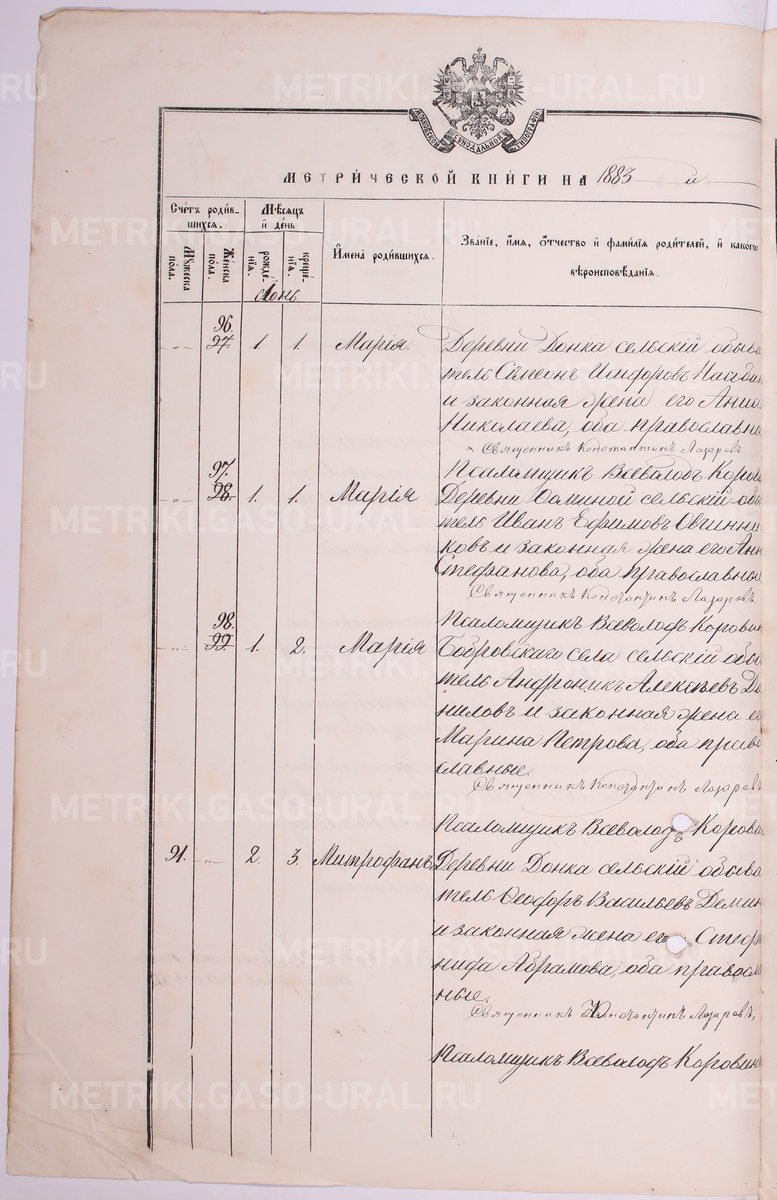 МЕТРИ́ЧЕСКОЙ КНИ́ГИ НА 1883 й
Сче́тъ роди́в-
шихся.
Мѣ́сяцъ
и҆ де́нь
И҆мена̀ роди́вшихся.
Зва́нїе, и҆́мя, ѻ҆́тчество и҆ фами́лїя роди́телей, и҆ како́гѡ
вѣроисповѣ́данїя.
Мꙋ́жеска
по́ла.
Же́нска
по́ла.
рожде́-
нїя.
креще́-
нїя.
96.
97 1. 1. Марія. Деревни Донка сельскій обыва
тель Сѵмеонъ
и законная жена его
Николаева, оба православны
Священникъ Константинъ Лазаревъ
Псаломщикъ Всеволодъ Корови
97.
98. 1. 1. Марія Деревни Фоминой сельскій обы
тель Иванъ Ефимовъ Овчинни
ковъ и законная жена его Анн
Стефанова, оба православные
Священникъ Константинъ Лазаревъ.
Псаломщикъ Всеволодъ Коровин
98.
99. 1. 2. Марія Бобровскаго села сельскій обы
тель Андроникъ Алексѣевъ Да
ниловъ и законная жена е
Марина Петрова, оба право
славные.
Священникъ Константинъ Лазаревъ
Псаломщикъ Всеволодъ Корови
91. 2. 3. Митрофанъ Деревни Донка сельскій обыва
тель Ѳеодоръ Васильевъ Демин
и законная жена его Стефа
нифа Абрамова, оба правосла
ные.
Священникъ Константинъ Лазаревъ,
Псаломщикъ Всеволодъ Коровинъ
METRIKI.GASO-URAL.RU